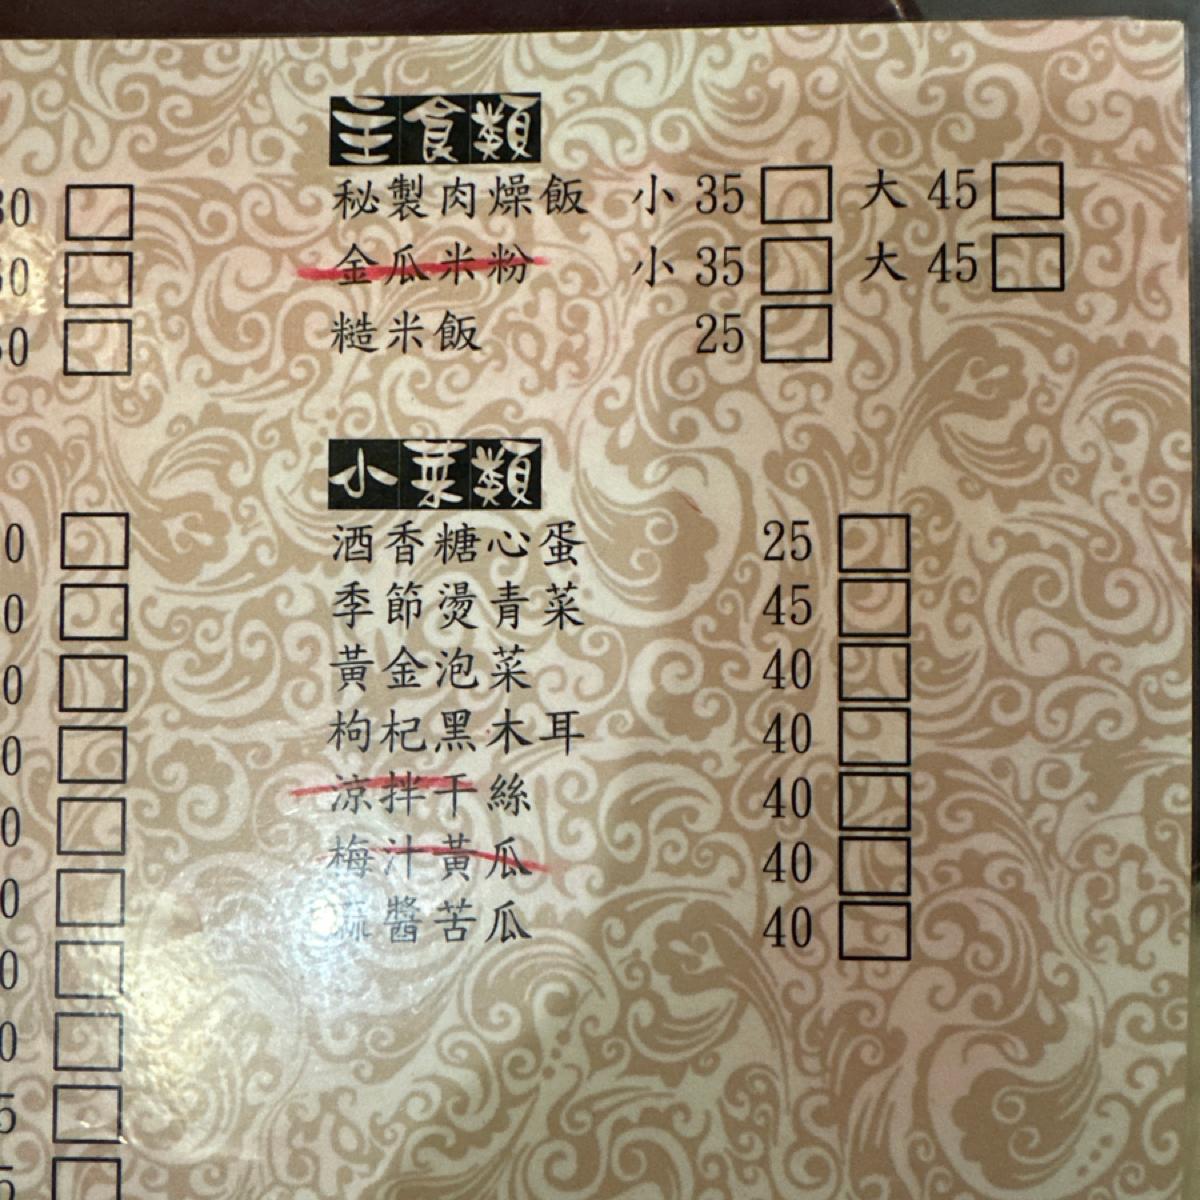 主食類
秘製肉燥飯 小 35 大 45
金瓜米粉 小 35 大 45
糙米飯 25
小菜類
酒香糖心蛋 25
季節燙青菜 45
黃金泡菜 40
枸杞黑木耳 40
涼拌干絲 40
梅汁黃瓜 40
麻醬苦瓜 40